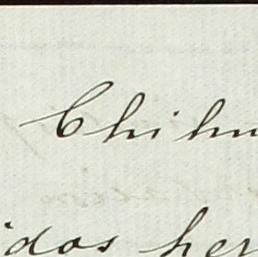 Chihu
idos her